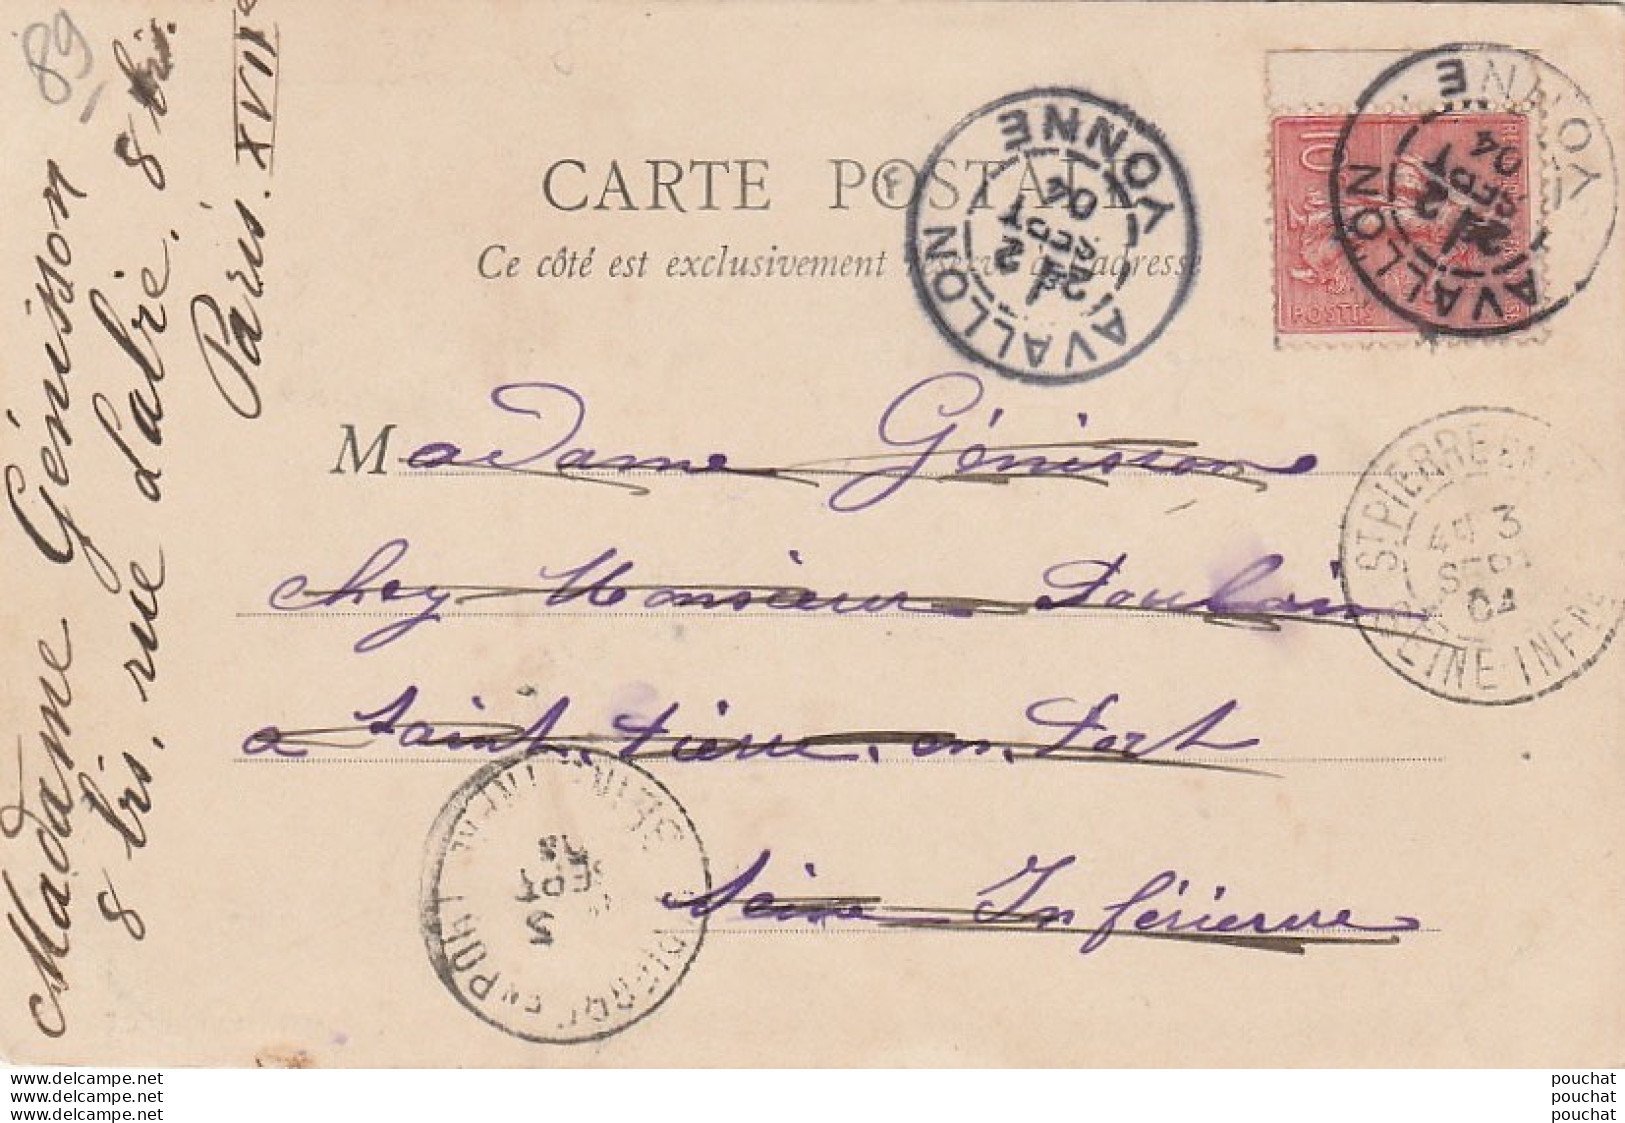 89
CARTE POSTALE
Ce côté est exclusivement réservé à l'adresse
Madame Génisson
chez Monsieur Poulain
a Saint. Pierre. en. Port
Seine Inférieure
Madame Génisson
8 bis, rue Dalbie. 8 bis.
Paris. XVIIe
AVALLON
YONNE
2
SEPT
04
10
POSTES
AVALLON
YONNE
2
SEPT
04
ST PIERRE EN
3
SEPT
04
SEINE INFRE
PIERRE EN PORT
5
SEPT
www.delcampe.net
www.delcampe.net
www.delcampe.net
pouchat
pouchat
pouchat